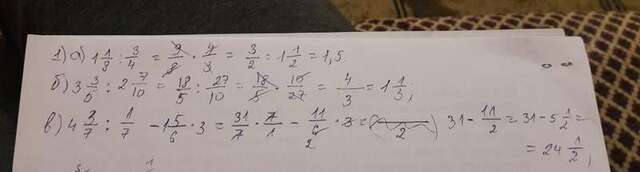 1) а) 1 1/8 : 3/4 = 9/8 · 4/3 = 3/2 = 1 1/2 = 1,5.
б) 3 3/5 : 2 7/10 = 18/5 : 27/10 = 18/5 · 10/27 = 4/3 = 1 1/3;
в) 4 3/7 : 1/7 - 1 5/6 · 3 = 31/7 · 7/1 - 11/6 · 3 = 31 - 11/2 = 31 - 5 1/2 =
= 24 1/2;